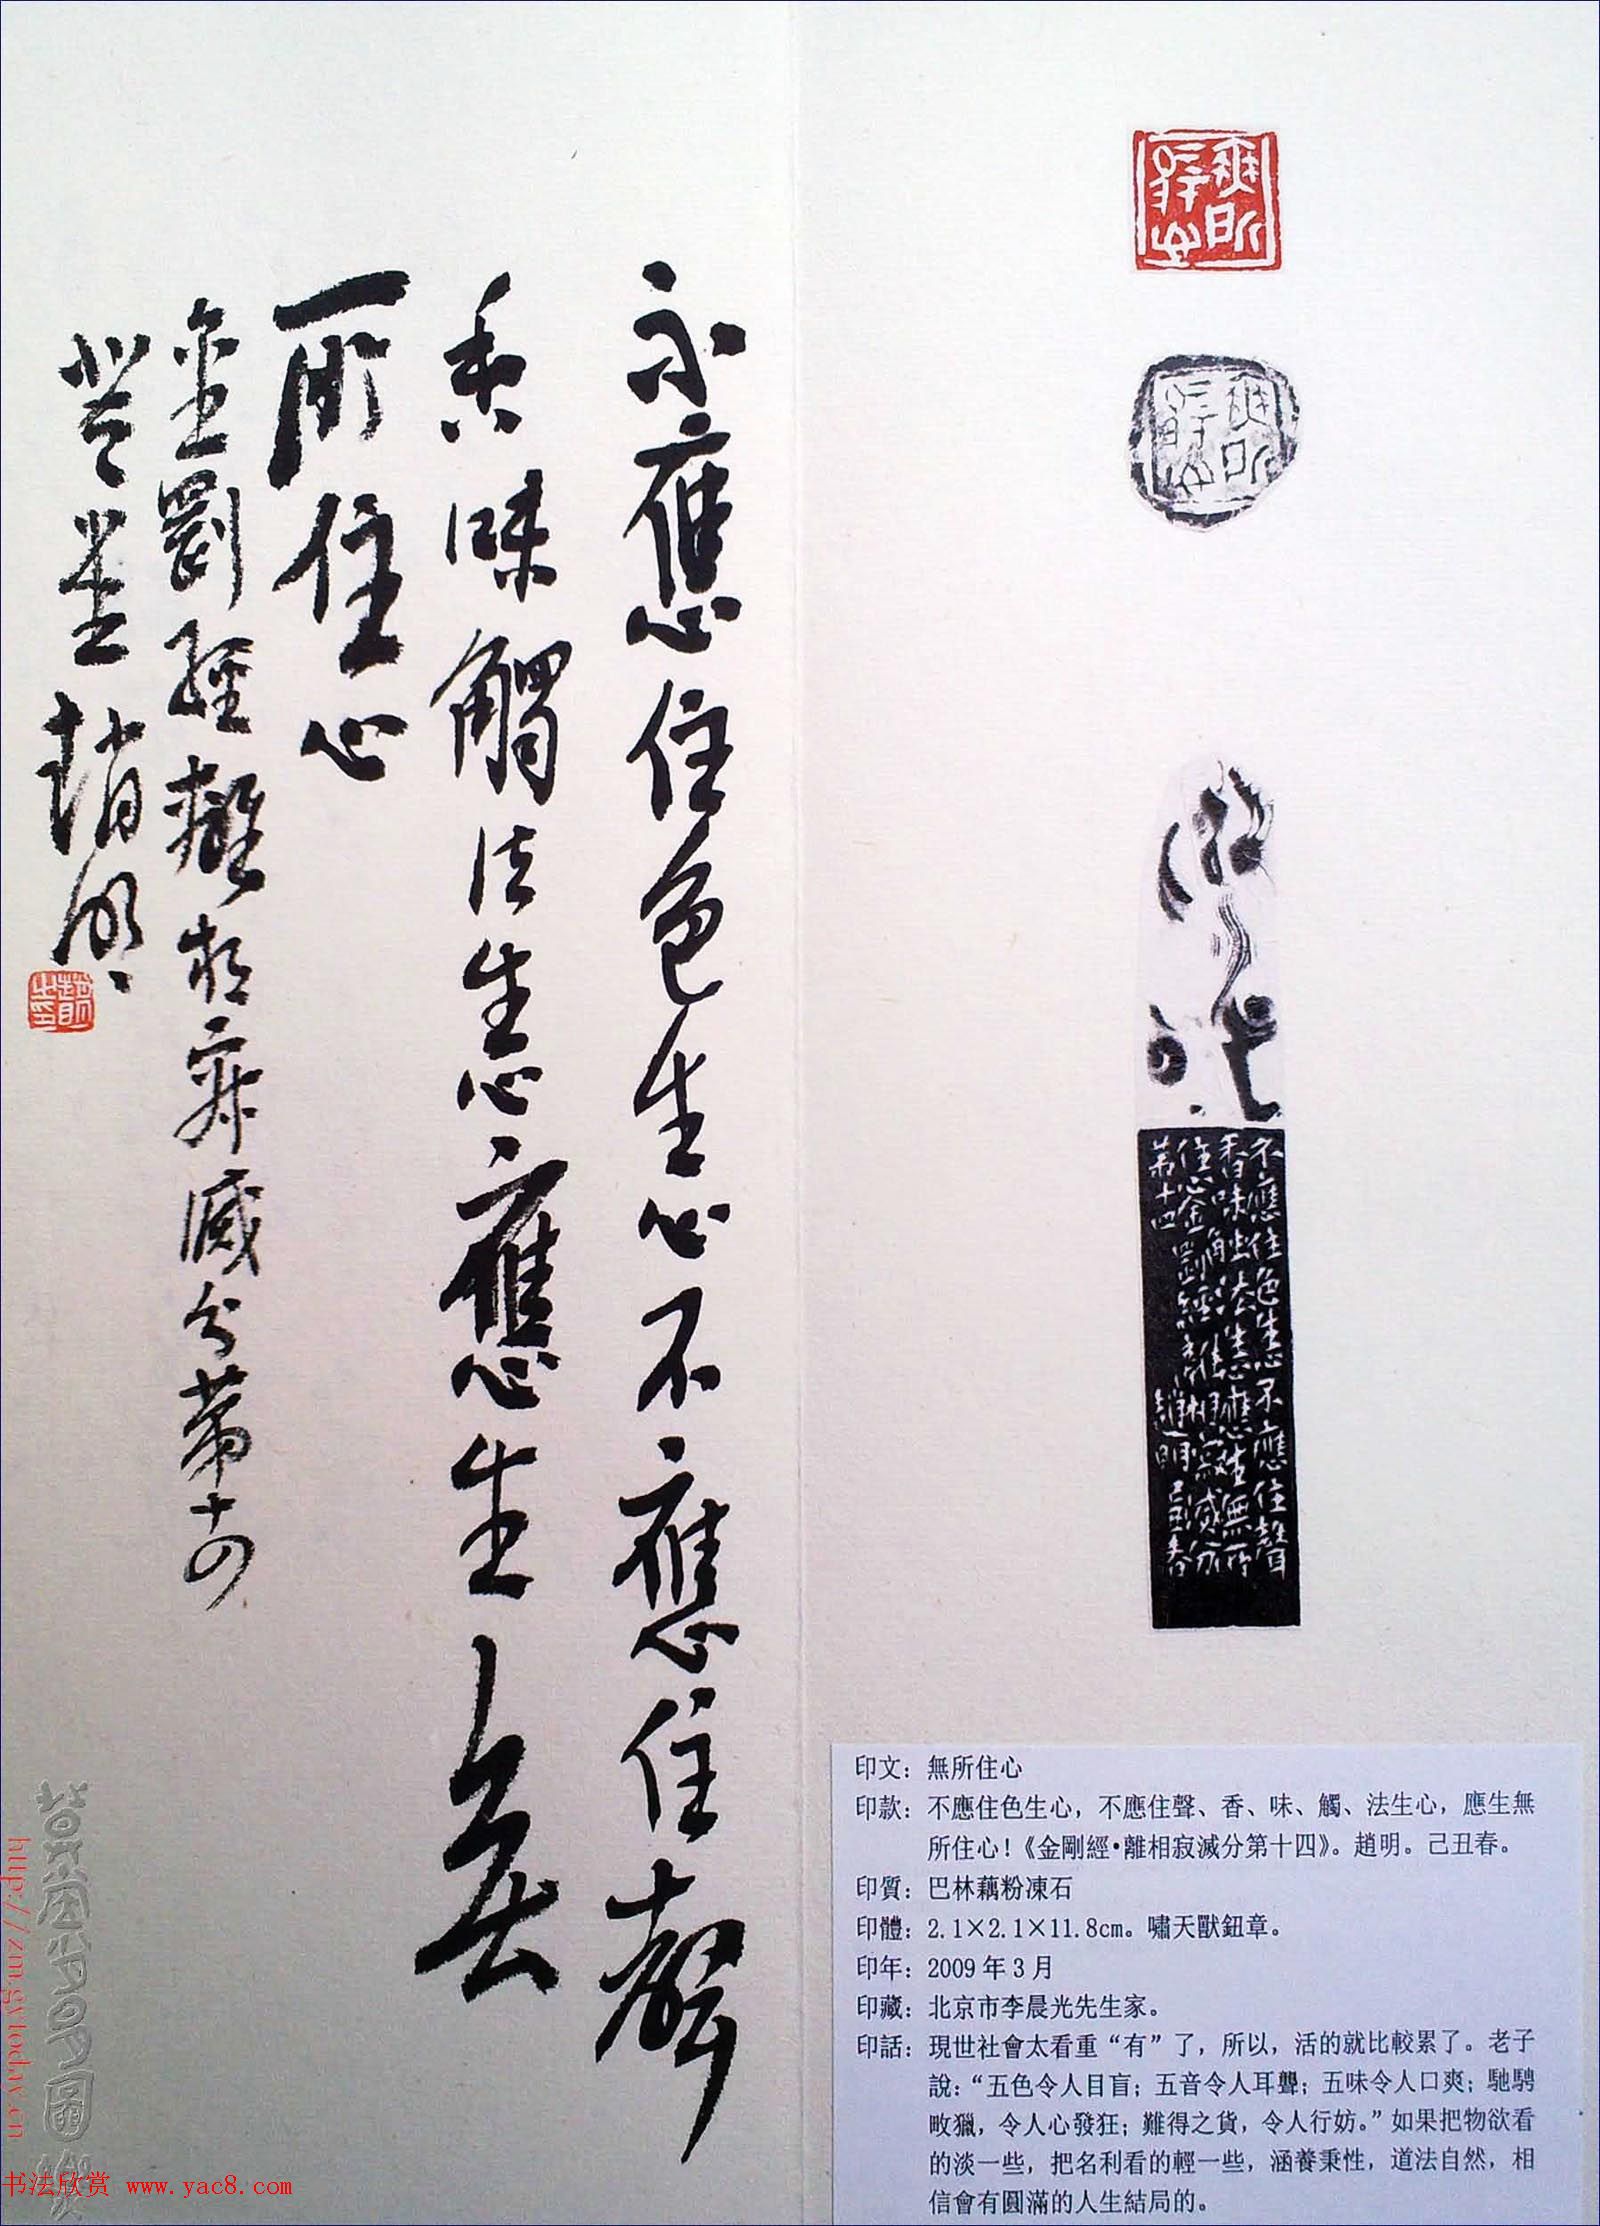 不應住色生心不應住聲
香味觸法生心應生無
所住心
金剛經離相寂滅分第十四
趙明
不應住色生心不應住聲
香味觸法生心應生無所
住心金剛經離相寂滅分
第十四 趙明己丑春
印文：無所住心
印款：不應住色生心，不應住聲、香、味、觸、法生心，應生無
所住心！《金剛經•離相寂滅分第十四》。趙明。己丑春。
印質：巴林藕粉凍石
印體：2.1×2.1×11.8cm。嘯天獸鈕章。
印年：2009 年 3 月
印藏：北京市李晨光先生家。
印話：現世社會太看重“有”了，所以，活的就比較累了。老子
說：“五色令人目盲；五音令人耳聾；五味令人口爽；馳騁
畋獵，令人心發狂；難得之貨，令人行妨。”如果把物欲看
的淡一些，把名利看的輕一些，涵養秉性，道法自然，相
信會有圓滿的人生結局的。
http://zm.gytoday.cn
书法欣赏 www.yac8.com